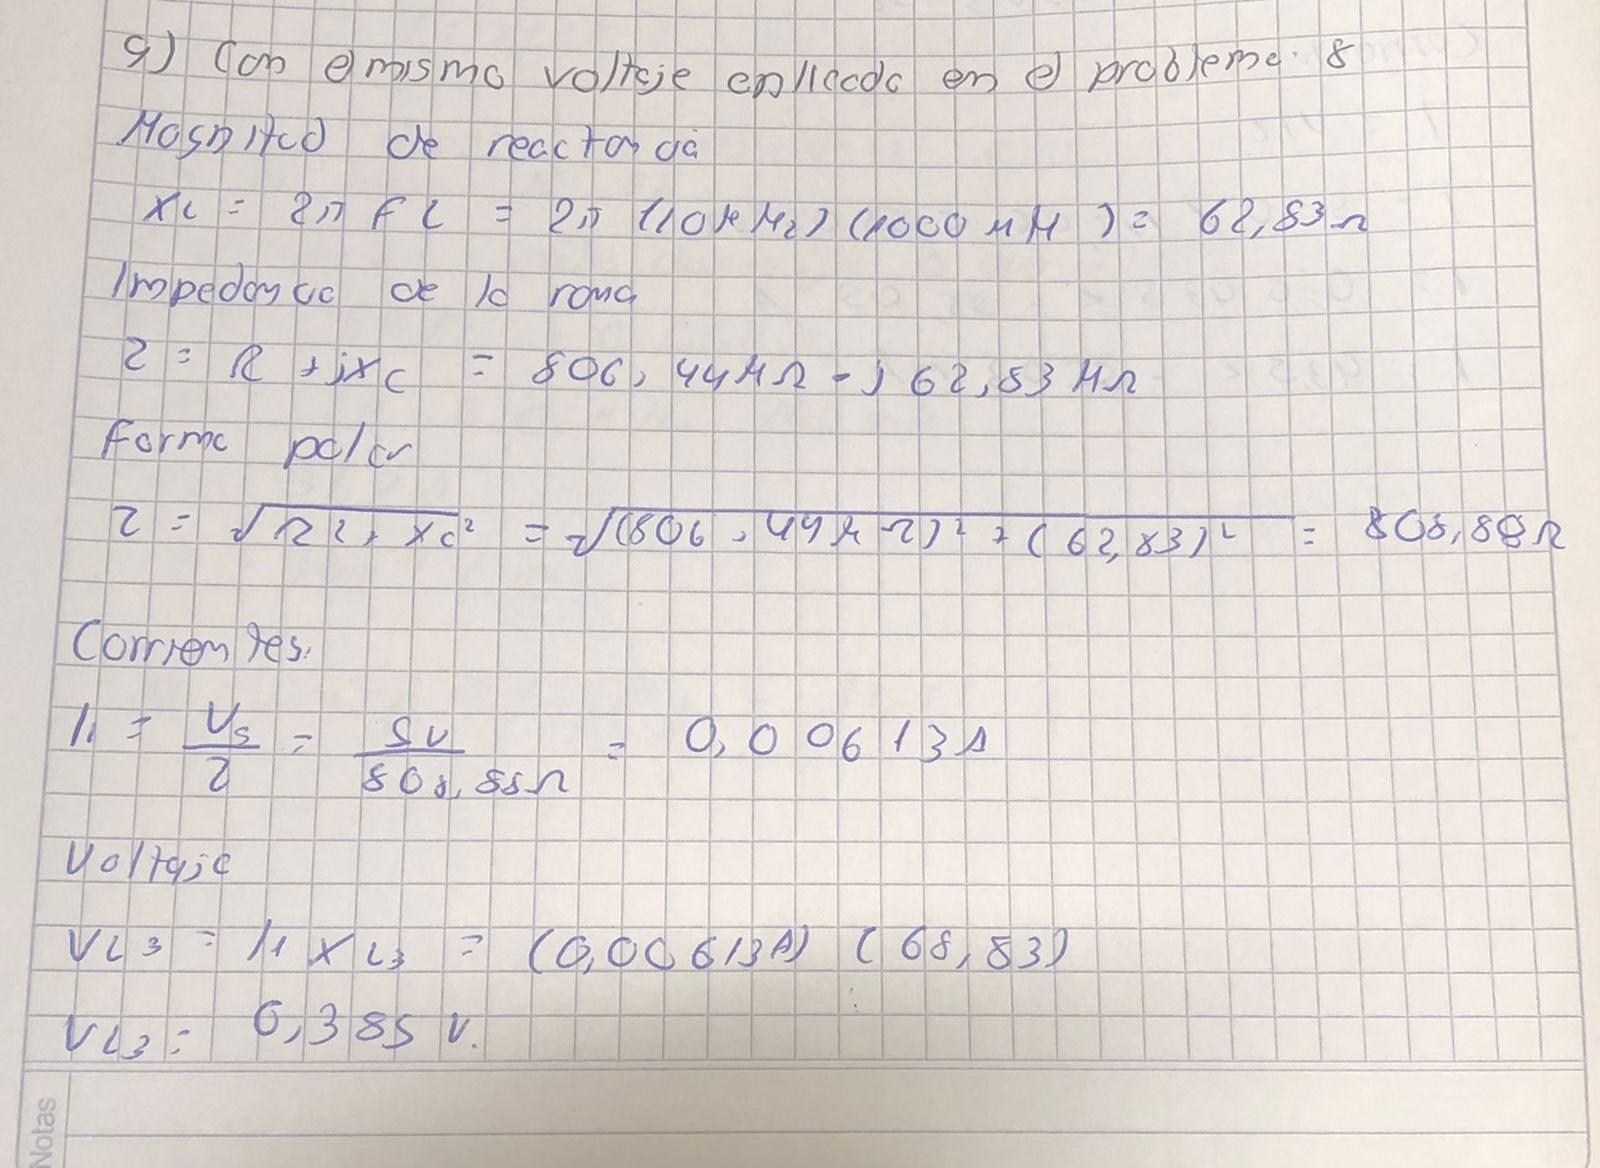 9) Con el mismo voltaje aplicado en el problema. 8
Magnitud de reactancia
XL = 2π F L = 2π (10KHz) (1000 μH) = 62,83Ω
Impedancia de la rama
Z = R + jXC = 806,44MΩ - j 62,83 MΩ
Forma polar
Z = √R2 + XC² = √(806,44MΩ)² + (62,83)² = 808,88Ω
Corrientes.
I1 = Vs/Z = 5V/808,88Ω = 0,00613A
Voltaje
VL3 = I1 XL3 = (0,00613A) (68,83)
VL3 = 0,385 V.
Notas